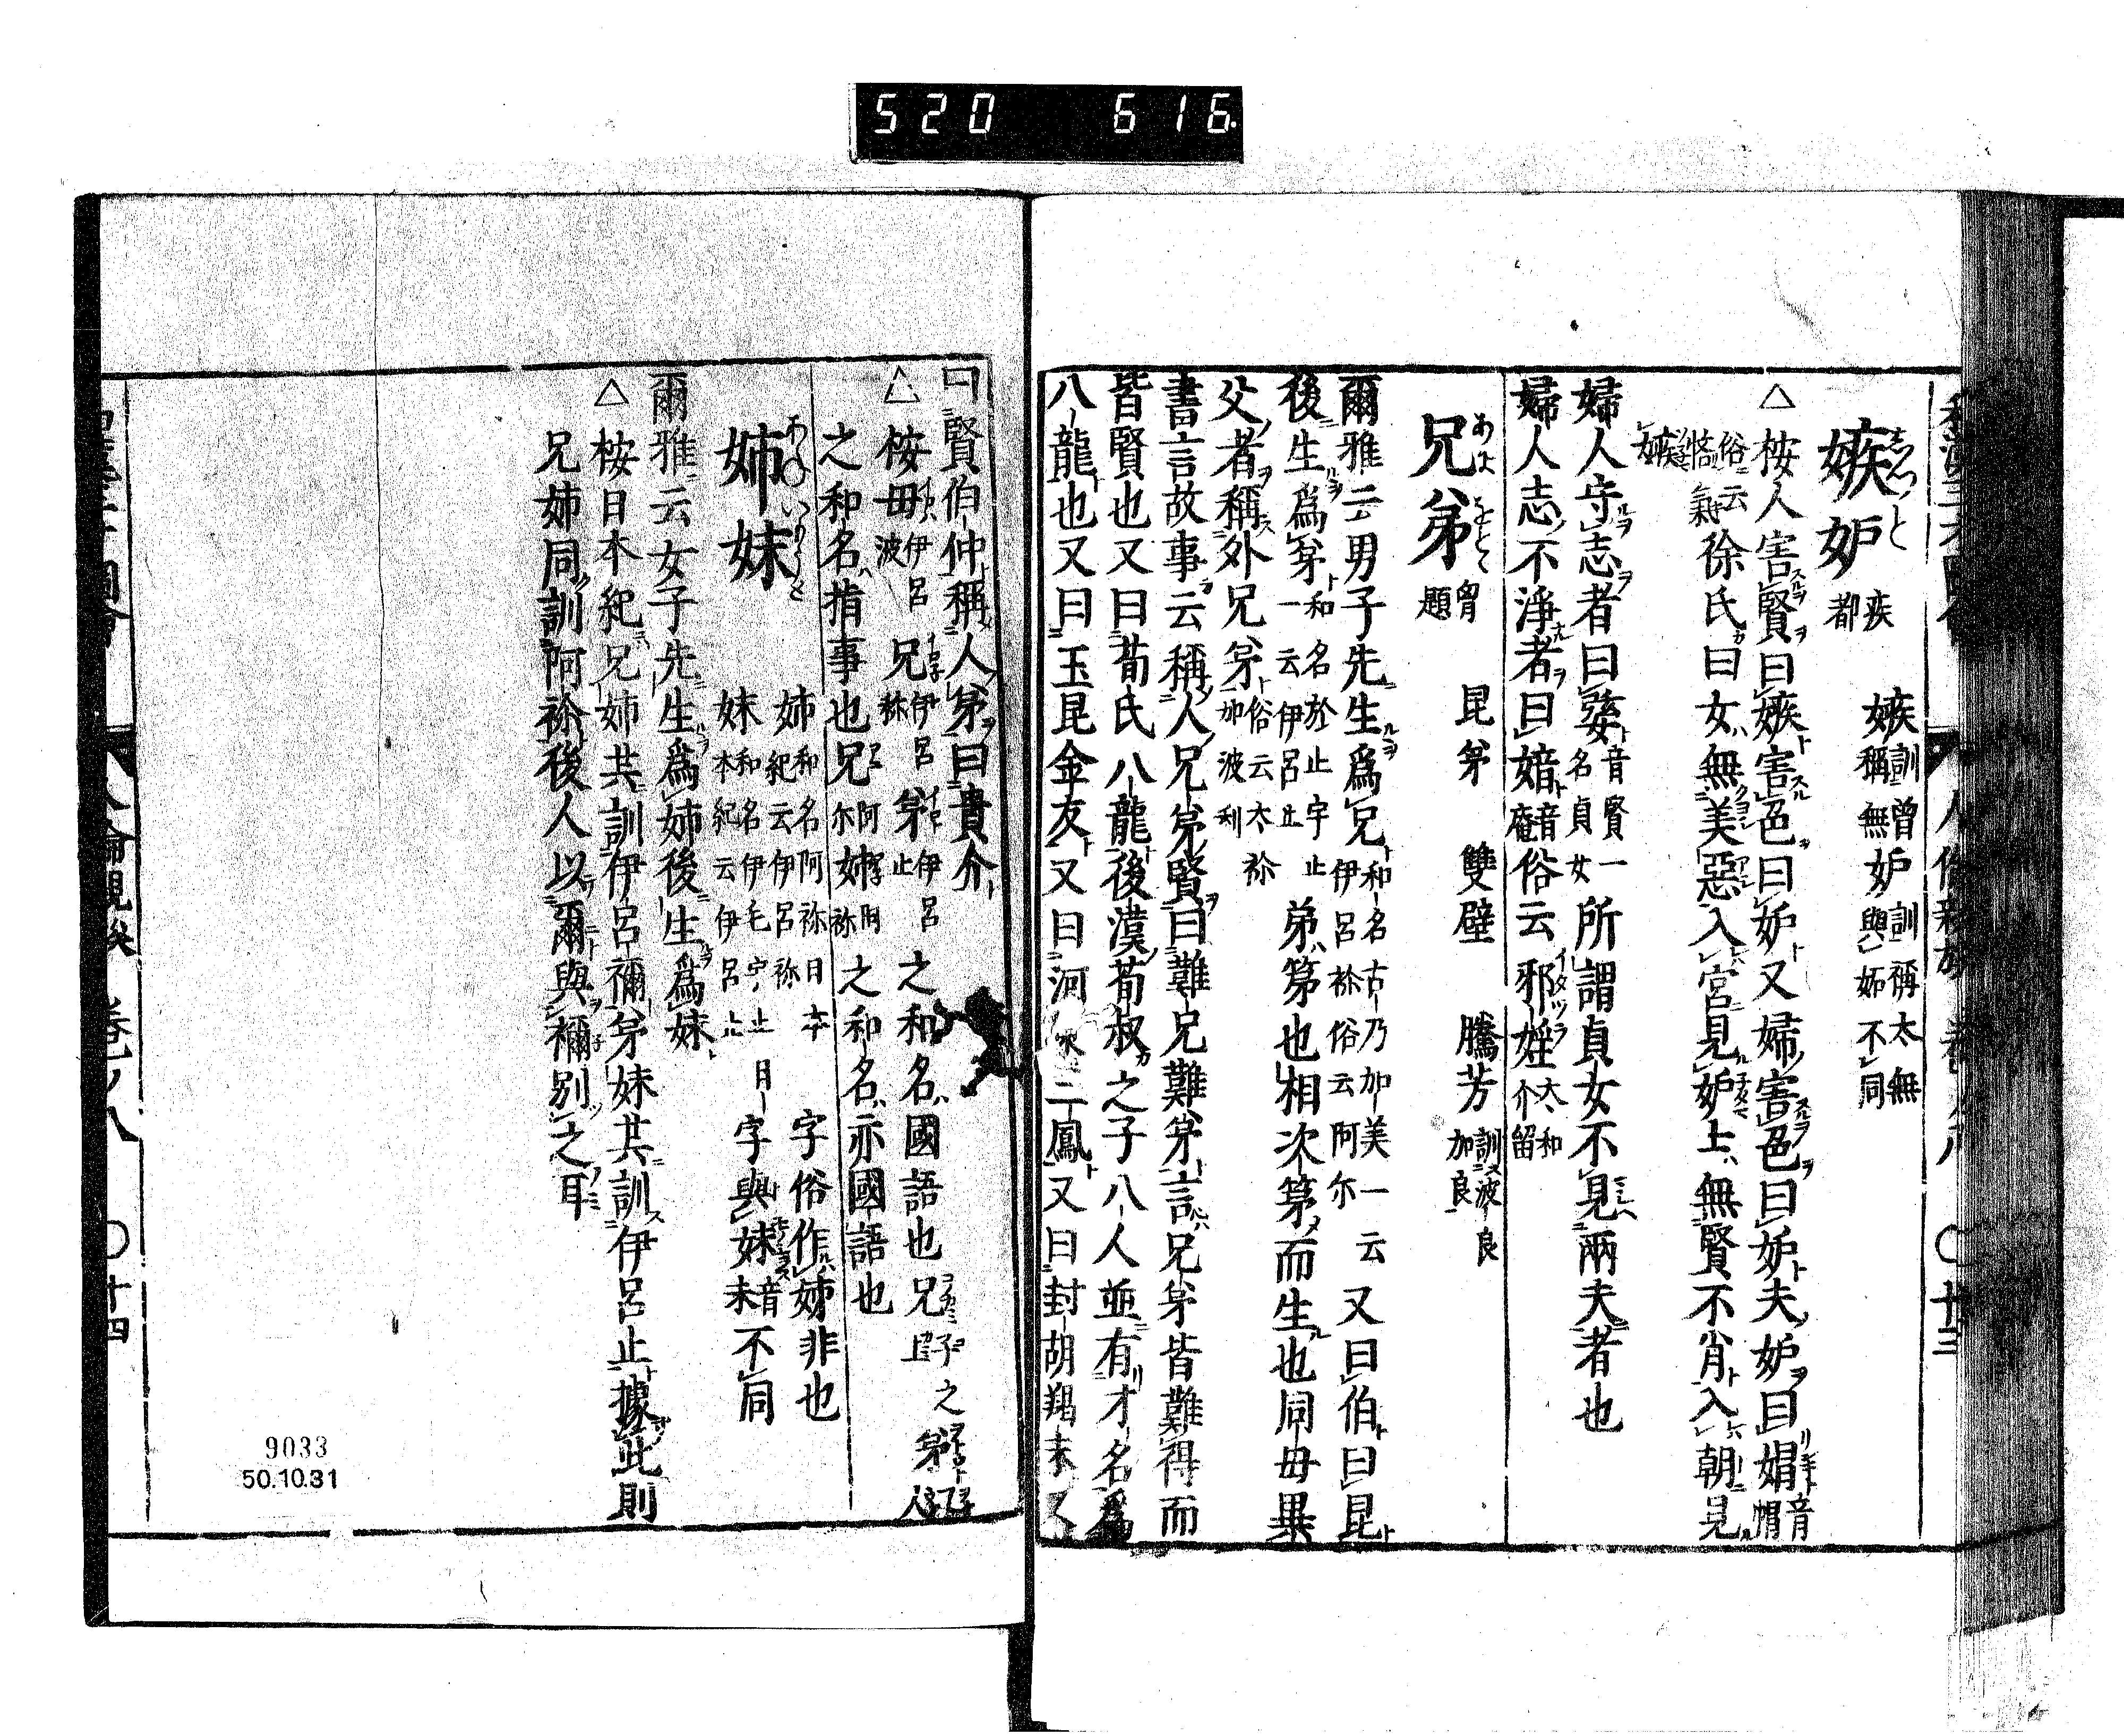 520 616
嫉妬 疾都
嫉 訓曽太無 稱無
妬 訓稱太無 與妬不同
△桉人害賢曰嫉害色曰妬又婦害色曰妬夫妬曰媢 音帽
俗云恪氣 嫉
徐氏曰女無美惡入宮見妬士無賢不肖入朝見
婦人守志者曰婜 音賢一名貞女 所謂貞女不見兩夫者也
婦人志不淨者曰婄 音庵 俗云邪婬 太和介留
兄弟 曽題
昆弟 雙璧 騰芳 訓波良加良
爾雅云男子先生爲兄 和名古乃加美一云伊呂袮俗云阿尓 又曰伯曰昆
後生爲弟 和名於止宇止一云伊呂止 弟第也相次第而生也同母異
父者稱外兄弟 俗云太袮加波利
書言故事云稱人兄弟賢曰難兄難弟言兄弟皆難得而
皆賢也又曰荀氏八龍後漢荀叔之子八人並有才名爲
八龍也又曰玉昆金友又曰河東二鳳又曰封胡羯末又
曰賢伯仲稱人弟曰貴介
△桉母 伊呂波 兄 伊呂袮 弟 伊呂止 之和名國語也兄 子上 之弟
之和名指事也兄 阿尓 姉 阿袮 之和名亦國語也
姉妹
姉 和名阿袮日本紀云伊呂袮 字俗作姊非也
妹 和名伊毛宇止日本紀云伊呂止 字與妺 音末 不同
爾雅云女子先生爲姉後生爲妹
△桉日本紀兄姉共訓伊呂禰弟妹共訓伊呂止據此則
兄姉同訓阿袮後人以爾與禰別之耳
人倫親族 巻ノ八 〇十四
9033
50.10.31